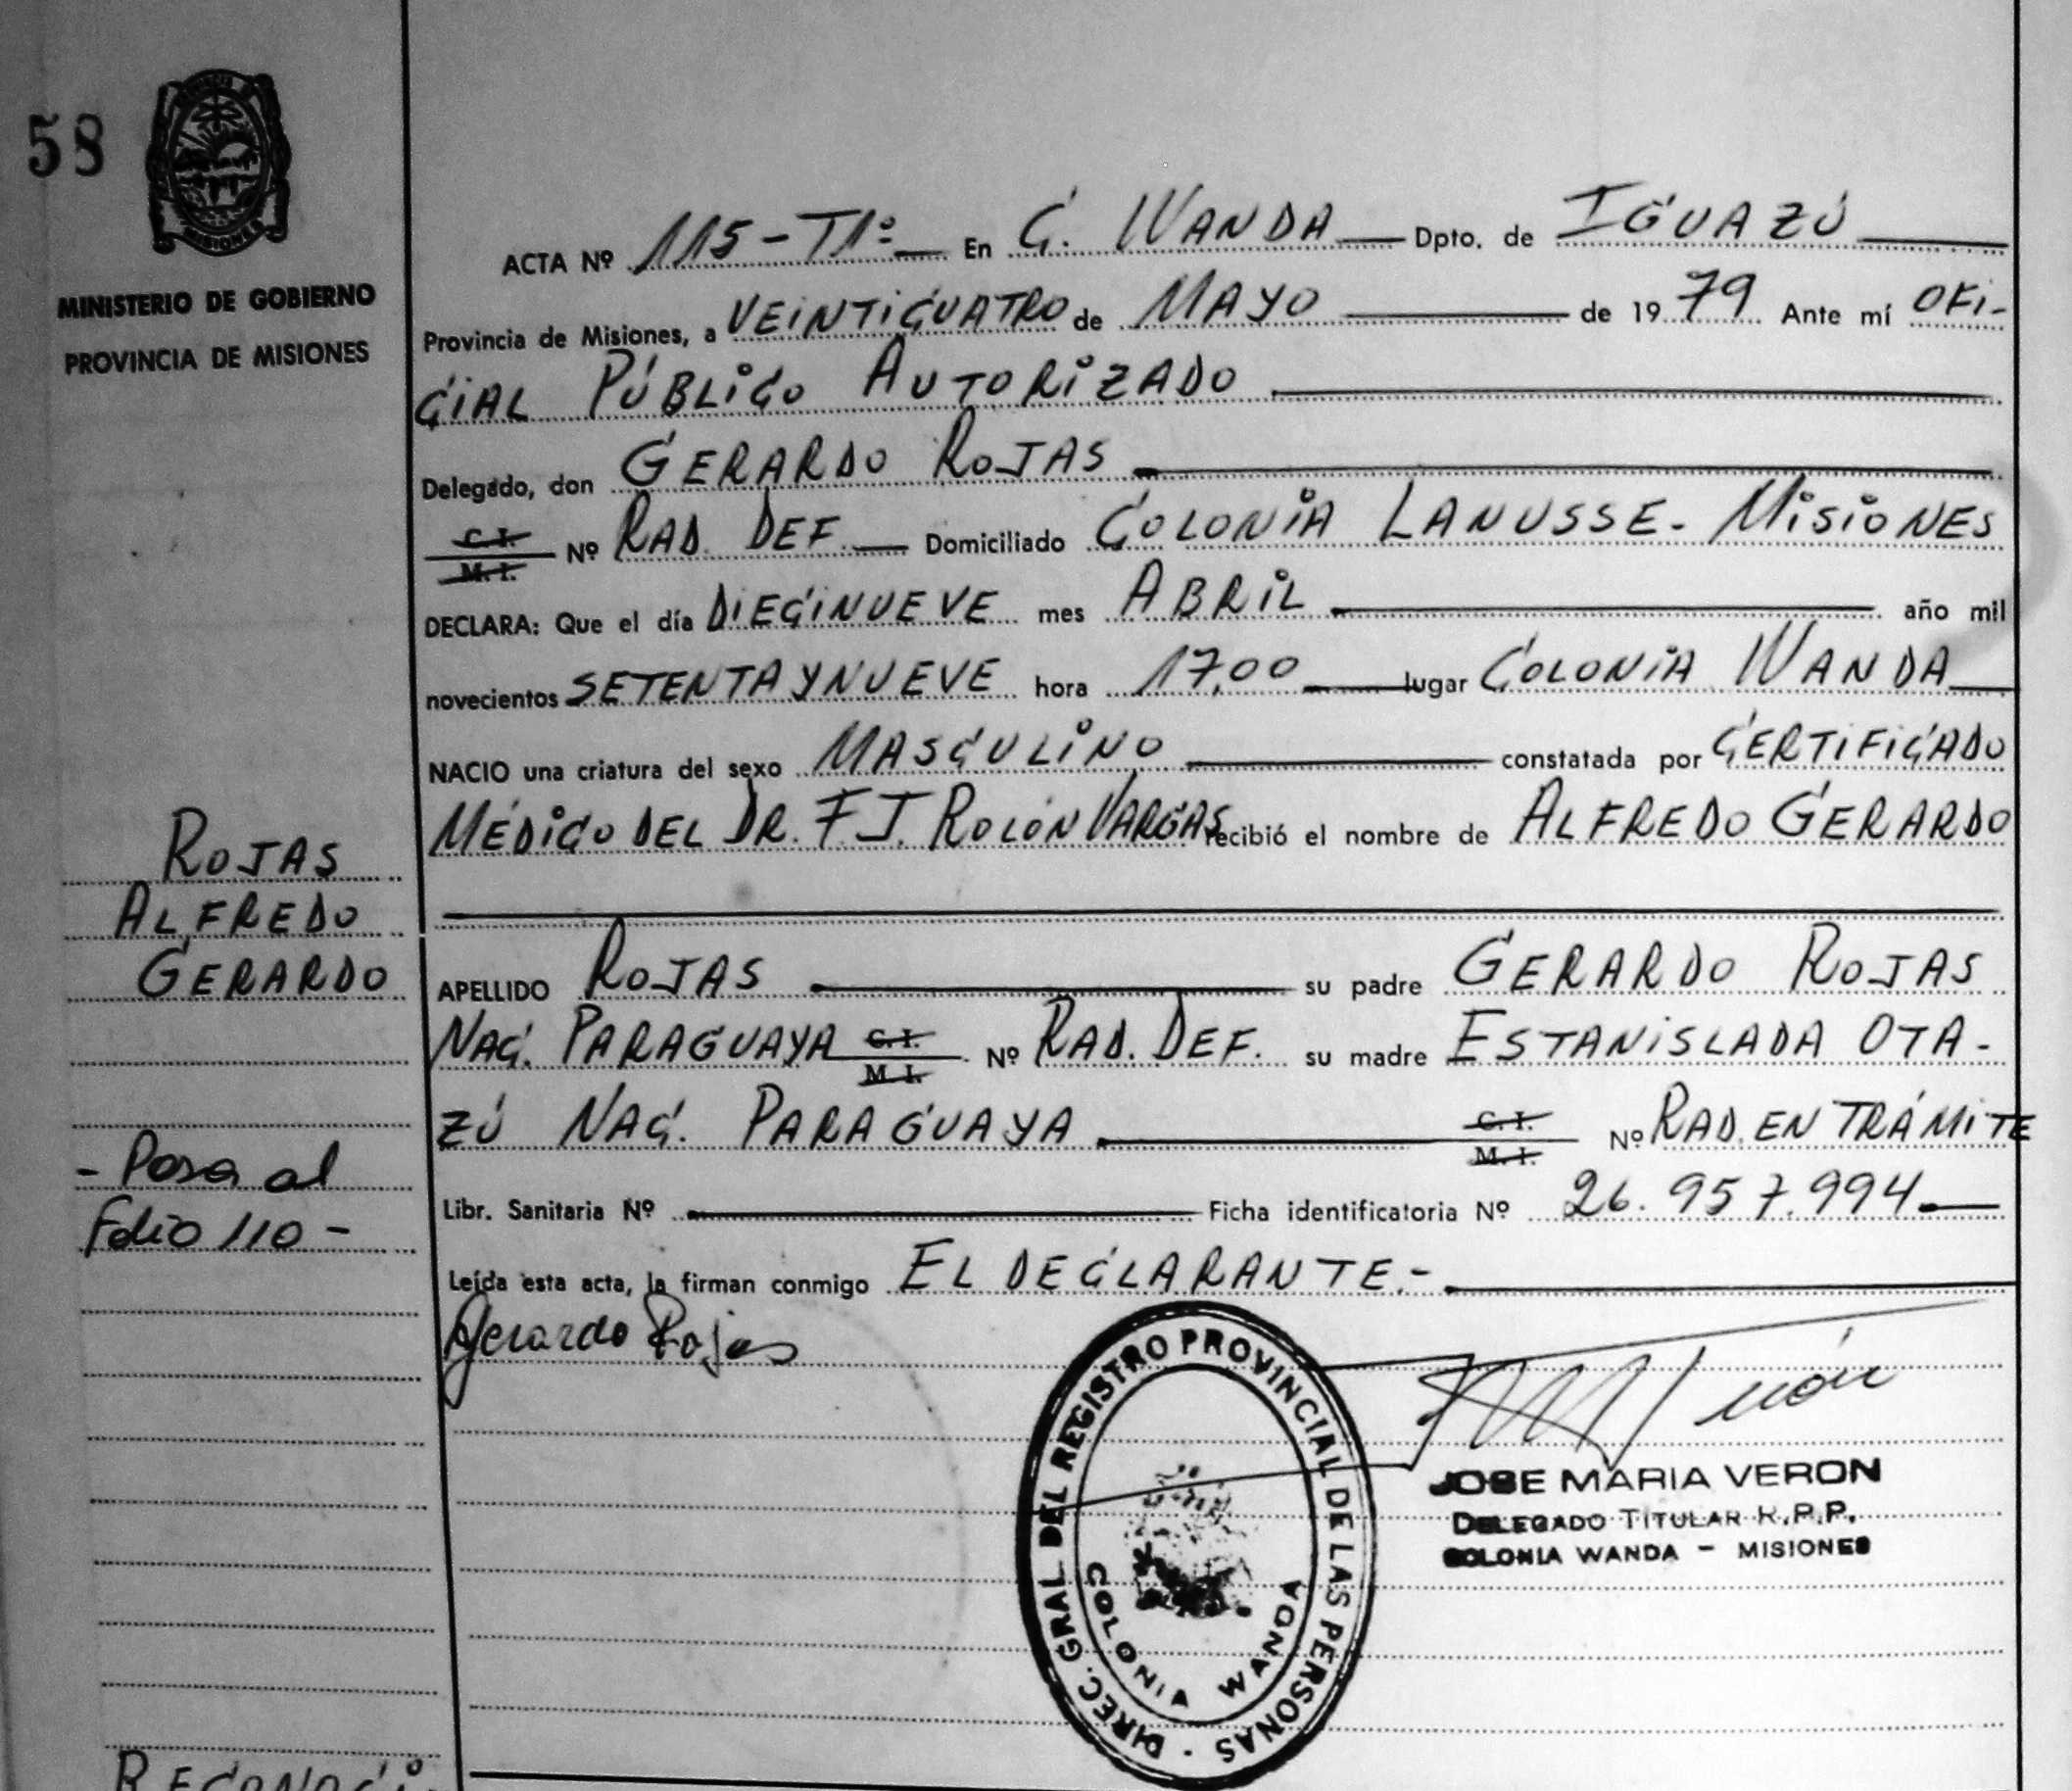 58
MISIONES
MINISTERIO DE GOBIERNO
PROVINCIA DE MISIONES
ACTA Nº 115-Tº1º En C. WANDA Dpto. de IGUAZÚ
Provincia de Misiones, a VEINTICUATRO de MAYO de 1979 Ante mí OFI-
CIAL PÚBLICO AUTORIZADO
Delegado, don GERARDO ROJAS
C.I. M.I. Nº RAD. DEF. Domiciliado COLONIA LANUSSE - MISIONES
DECLARA: Que el día DIECINUEVE mes ABRIL año mil
novecientos SETENTA Y NUEVE hora 17,00 lugar COLONIA WANDA
NACIO una criatura del sexo MASCULINO constatada por CERTIFICADO
MÉDICO DEL DR. F.J. ROLÓN VARGAS recibió el nombre de ALFREDO GERARDO
ROJAS
ALFREDO
GERARDO
APELLIDO ROJAS su padre GERARDO ROJAS
NAC. PARAGUAYA C.I. M.I. Nº RAD. DEF. su madre ESTANISLADA OTA-
ZÚ NAC. PARAGUAYA C.I. M.I. Nº RAD. EN TRÁMITE
- Pasa al
Folio 110 -
Libr. Sanitaria Nº Ficha identificatoria Nº 26.957.994
Leída esta acta, la firman conmigo EL DECLARANTE.-
Gerardo Rojas
DIREC. GRAL DEL REGISTRO PROVINCIAL DE LAS PERSONAS
COLONIA WANDA
JOSE MARIA VERON
DELEGADO TITULAR R.P.P.
COLONIA WANDA - MISIONES